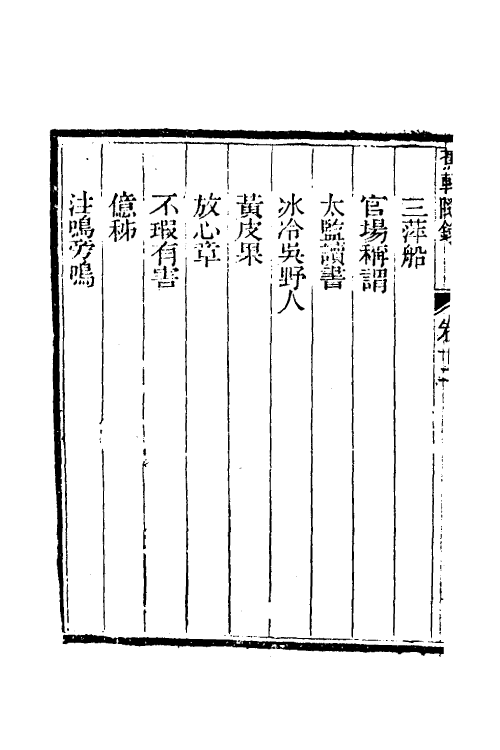 三萍船
官場稱謂
太監讀書
冰冷吳野人
黃皮果
放心草
不瑕有害
億秭
注鳴旁鳴